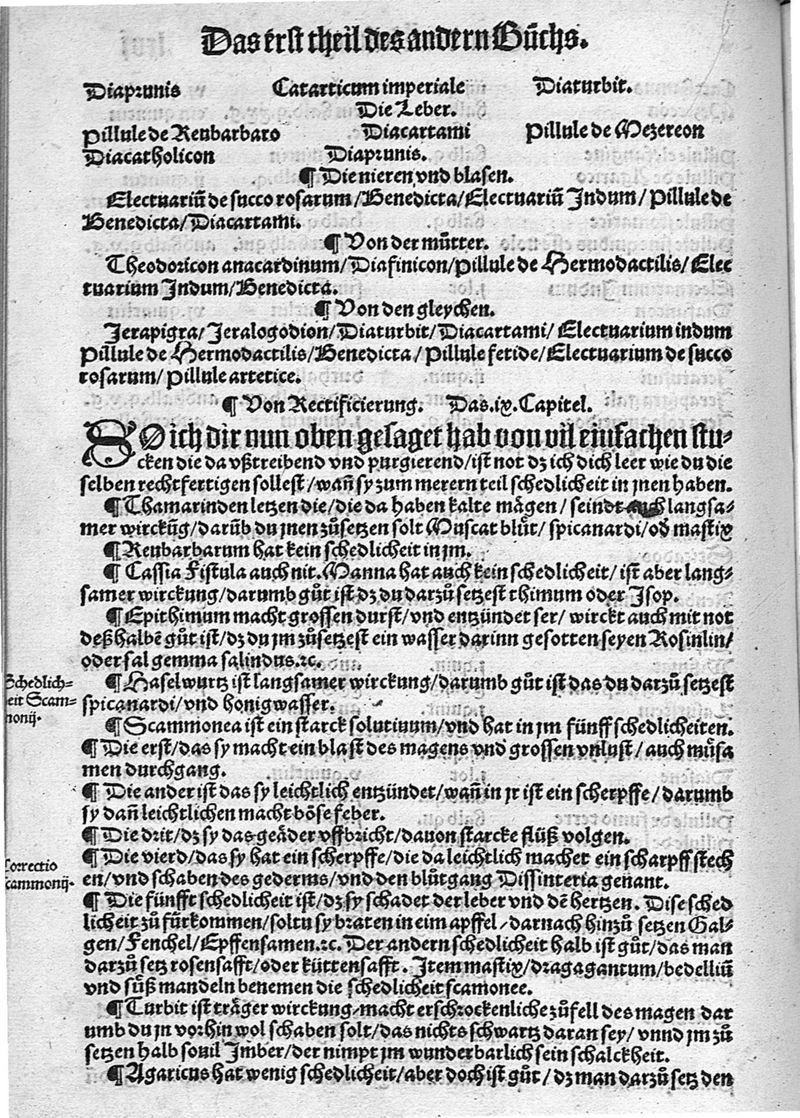 Das erst theil des andern Bůchs.
Diaprunis Catarticum imperiale Diaturbit.
Die Leber.
Pillule de Reubarbaro Diacartami Pillule de Mezereon
Diacatholicon Diaprunis.
¶ Die nieren vnd blasen.
Electuariū de succo rosarum/Benedicta/Electuariū Indum/Pillule de
Benedicta/Diacartami.
¶ Von der můtter.
Theodoricon anacardinum/Diafinicon/Pillule de Hermodactilis/Elec
tuarium Indum/Benedicta.
¶ Von den gleychen.
Jerapigra/Jeralogodion/Diaturbit/Diacartami/Electuarium indum
Pillule de Hermodactilis/Benedicta/Pillule fetide/Electuarium de succo
rosarum/Pillule artetice.
¶ Von Rectificierung. Das.ix.Capitel.
SO ich dir nun oben gesaget hab von vil einfachen stu-
cken die da vßtreibend vnd purgierend/ist not dz ich dich leer wie du die
selben rechtfertigen sollest/wañ sy zum merern teil schedlicheit in jnen haben.
¶ Thamarinden letzen die/die da haben kalte mägen/seindt auch langsa-
mer wirckūg/darūb du jnen zůsetzen solt Muscat blůt/spicanardi/od mastix
¶ Reubarbarum hat kein schedlicheit in jm.
¶ Cassia Fistula auch nit. Manna hat auch kein schedlicheit/ist aber lang-
samer wirckung/darumb gůt ist dz du darzů setzest thimum oder Isop.
¶ Epithimum macht grossen durst/vnd entzündet ser/wirckt auch mit not
deßhalbē gůt ist/dz du jm zůsetzest ein wasser darinn gesotten seyen Rosinlin/
oder sal gemma salindus.ꝛc.
¶ Haselwurtz ist langsamer wirckung/darumb gůt ist das du darzů setzest
spicanardi/vnd honigwasser.
Schedlich-
eit Scam-
monij.
¶ Scammonea ist ein starck solutiuum/vnd hat in jm fünff schedlicheiten.
¶ Die erst/das sy macht ein blast des magens vnd grossen vnlust/auch můsa
men durchgang.
¶ Die ander ist das sy leichtlich entzündet/wañ in jr ist ein scherpffe/darumb
sy dañ leichtlichen macht böse feber.
¶ Die drit/dz sy das geäder vffbricht/dauon starcke flüß volgen.
Correctio
scammonij.
¶ Die vierd/das sy hat ein scherpffe/die da leichtlich machet ein scharpff stech
en/vnd schaben des gederms/vnd den blůtgang Dissinteria genant.
¶ Die fünfft schedlicheit ist/dz sy schadet der leber vnd dē hertzen. Dise sched
licheit zů fürkommen/soltu sy braten in eim apffel/darnach hinzů setzen Gal-
gen/Fenchel/Epffensamen.ꝛc. Der andern schedlicheit halb ist gůt/das man
darzů setz rosensafft/oder küttensafft. Item mastix/dragagantum/bedelliū
vnd süß mandeln benemen die schedlicheit scamonee.
¶ Turbit ist träger wirckung/macht erschrockenliche zůfell des magen dar
umb du jn vorhin wol schaben solt/das nichts schwartz daran sey/vnnd jm zů
setzen halb souil Imber/der nimpt jm wunderbarlich sein schalckheit.
¶ Agaricus hat wenig schedlicheit/aber doch ist gůt/dz man darzů setz den